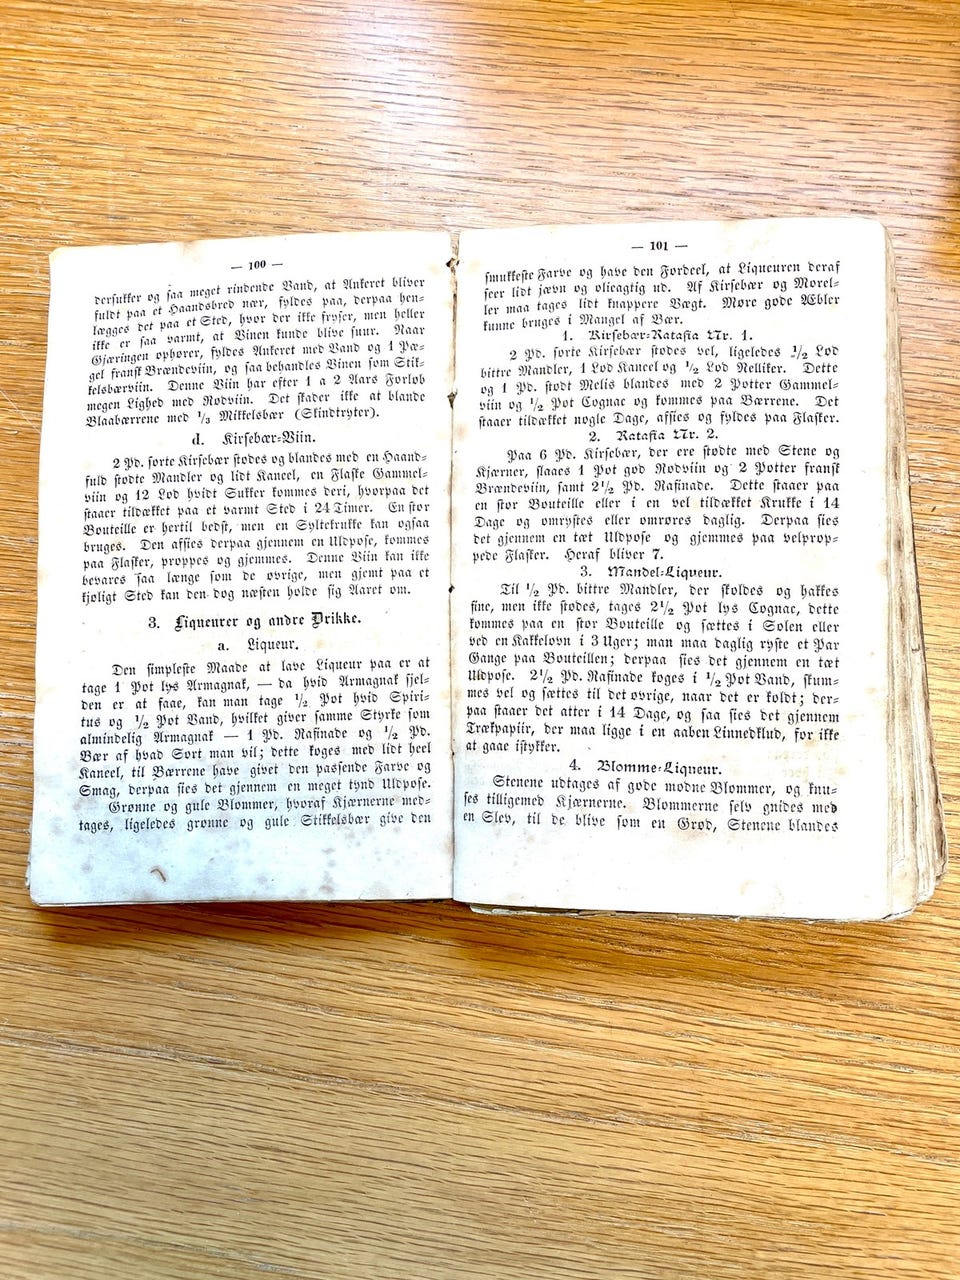 — 100 —
dersukker og saa meget rindende Vand, at Ankeret bliver
fuldt paa et Haandsbred nær, fyldes paa, derpaa hen-
lægges det paa et Sted, hvor der ikke fryser, men heller
ikke er saa varmt, at Vinen kunde blive suur. Naar
Gjæringen ophører, fyldes Ankeret med Vand og 1 Pæ-
gel fransk Brændeviin, og saa behandles Vinen som Stik-
kelsbærviin. Denne Viin har efter 1 a 2 Aars Forløb
megen Lighed med Rødviin. Det skader ikke at blande
Blaabærrene med 1/3 Mikkelsbær (Skindtryter).
d. Kirsebær-Viin.
2 Pd. sorte Kirsebær stødes og blandes med en Haand-
fuld stødte Mandler og lidt Kaneel, en Flaske Gammel-
viin og 12 Lod hvidt Sukker kommes deri, hvorpaa det
staaer tildækket paa et varmt Sted i 24 Timer. En stor
Bouteille er hertil bedst, men en Syltekrukke kan ogsaa
bruges. Den afsies derpaa gjennem en Uldpose, kommes
paa Flasker, proppes og gjemmes. Denne Viin kan ikke
bevares saa længe som de øvrige, men gjemt paa et
kjøligt Sted kan den dog næsten holde sig Aaret om.
3. Liqueurer og andre Drikke.
a. Liqueur.
Den simpleste Maade at lave Liqueur paa er at
tage 1 Pot lys Armagnak, — da hvid Armagnak sjel-
den er at faae, kan man tage 1/2 Pot hvid Spiri-
tus og 1/2 Pot Vand, hvilket giver samme Styrke som
almindelig Armagnak — 1 Pd. Rafinade og 1/2 Pd.
Bær af hvad Sort man vil; dette koges med lidt heel
Kaneel, til Bærrene have givet den passende Farve og
Smag, derpaa sies det gjennem en meget tynd Uldpose.
Grønne og gule Blommer, hvoraf Kjærnerne med-
tages, ligeledes grønne og gule Stikkelsbær give den
— 101 —
smukkeste Farve og have den Fordeel, at Liqueuren deraf
seer lidt jævn og olieagtig ud. Af Kirsebær og Morel-
ler maa tages lidt knappere Vægt. Møre gode Æbler
kunne bruges i Mangel af Bær.
1. Kirsebær-Ratafia Nr. 1.
2 Pd. sorte Kirsebær stødes vel, ligeledes 1/2 Lod
bittre Mandler, 1 Lod Kaneel og 1/2 Lod Nelliker. Dette
og 1 Pd. stødt Melis blandes med 2 Potter Gammel-
viin og 1/2 Pot Cognac og kommes paa Bærrene. Det
staaer tildækket nogle Dage, afsies og fyldes paa Flasker.
2. Ratafia Nr. 2.
Paa 6 Pd. Kirsebær, der ere stødte med Stene og
Kjærner, slaaes 1 Pot god Rødviin og 2 Potter fransk
Brændeviin, samt 2 1/2 Pd. Rafinade. Dette staaer paa
en stor Bouteille eller i en vel tildækket Krukke i 14
Dage og omrystes eller omrøres daglig. Derpaa sies
det gjennem en tæt Uldpose og gjemmes paa velprop-
pede Flasker. Heraf bliver 7.
3. Mandel-Liqueur.
Til 1/2 Pd. bittre Mandler, der skoldes og hakkes
fine, men ikke stødes, tages 2 1/2 Pot lys Cognac, dette
kommes paa en stor Bouteille og sættes i Solen eller
ved en Kakkelovn i 3 Uger; man maa daglig ryste et Par
Gange paa Bouteillen; derpaa sies det gjennem en tæt
Uldpose. 2 1/2 Pd. Rafinade koges i 1/2 Pot Vand, skum-
mes vel og sættes til det øvrige, naar det er koldt; der-
paa staaer det atter i 14 Dage, og saa sies det gjennem
Trækpapiir, der maa ligge i en aaben Linnedklud, for ikke
at gaae istykker.
4. Blomme-Liqueur.
Stenene udtages af gode modne Blommer, og knu-
ses tilligemed Kjærnerne. Blommerne selv gnides med
en Slev, til de blive som en Grød, Stenene blandes